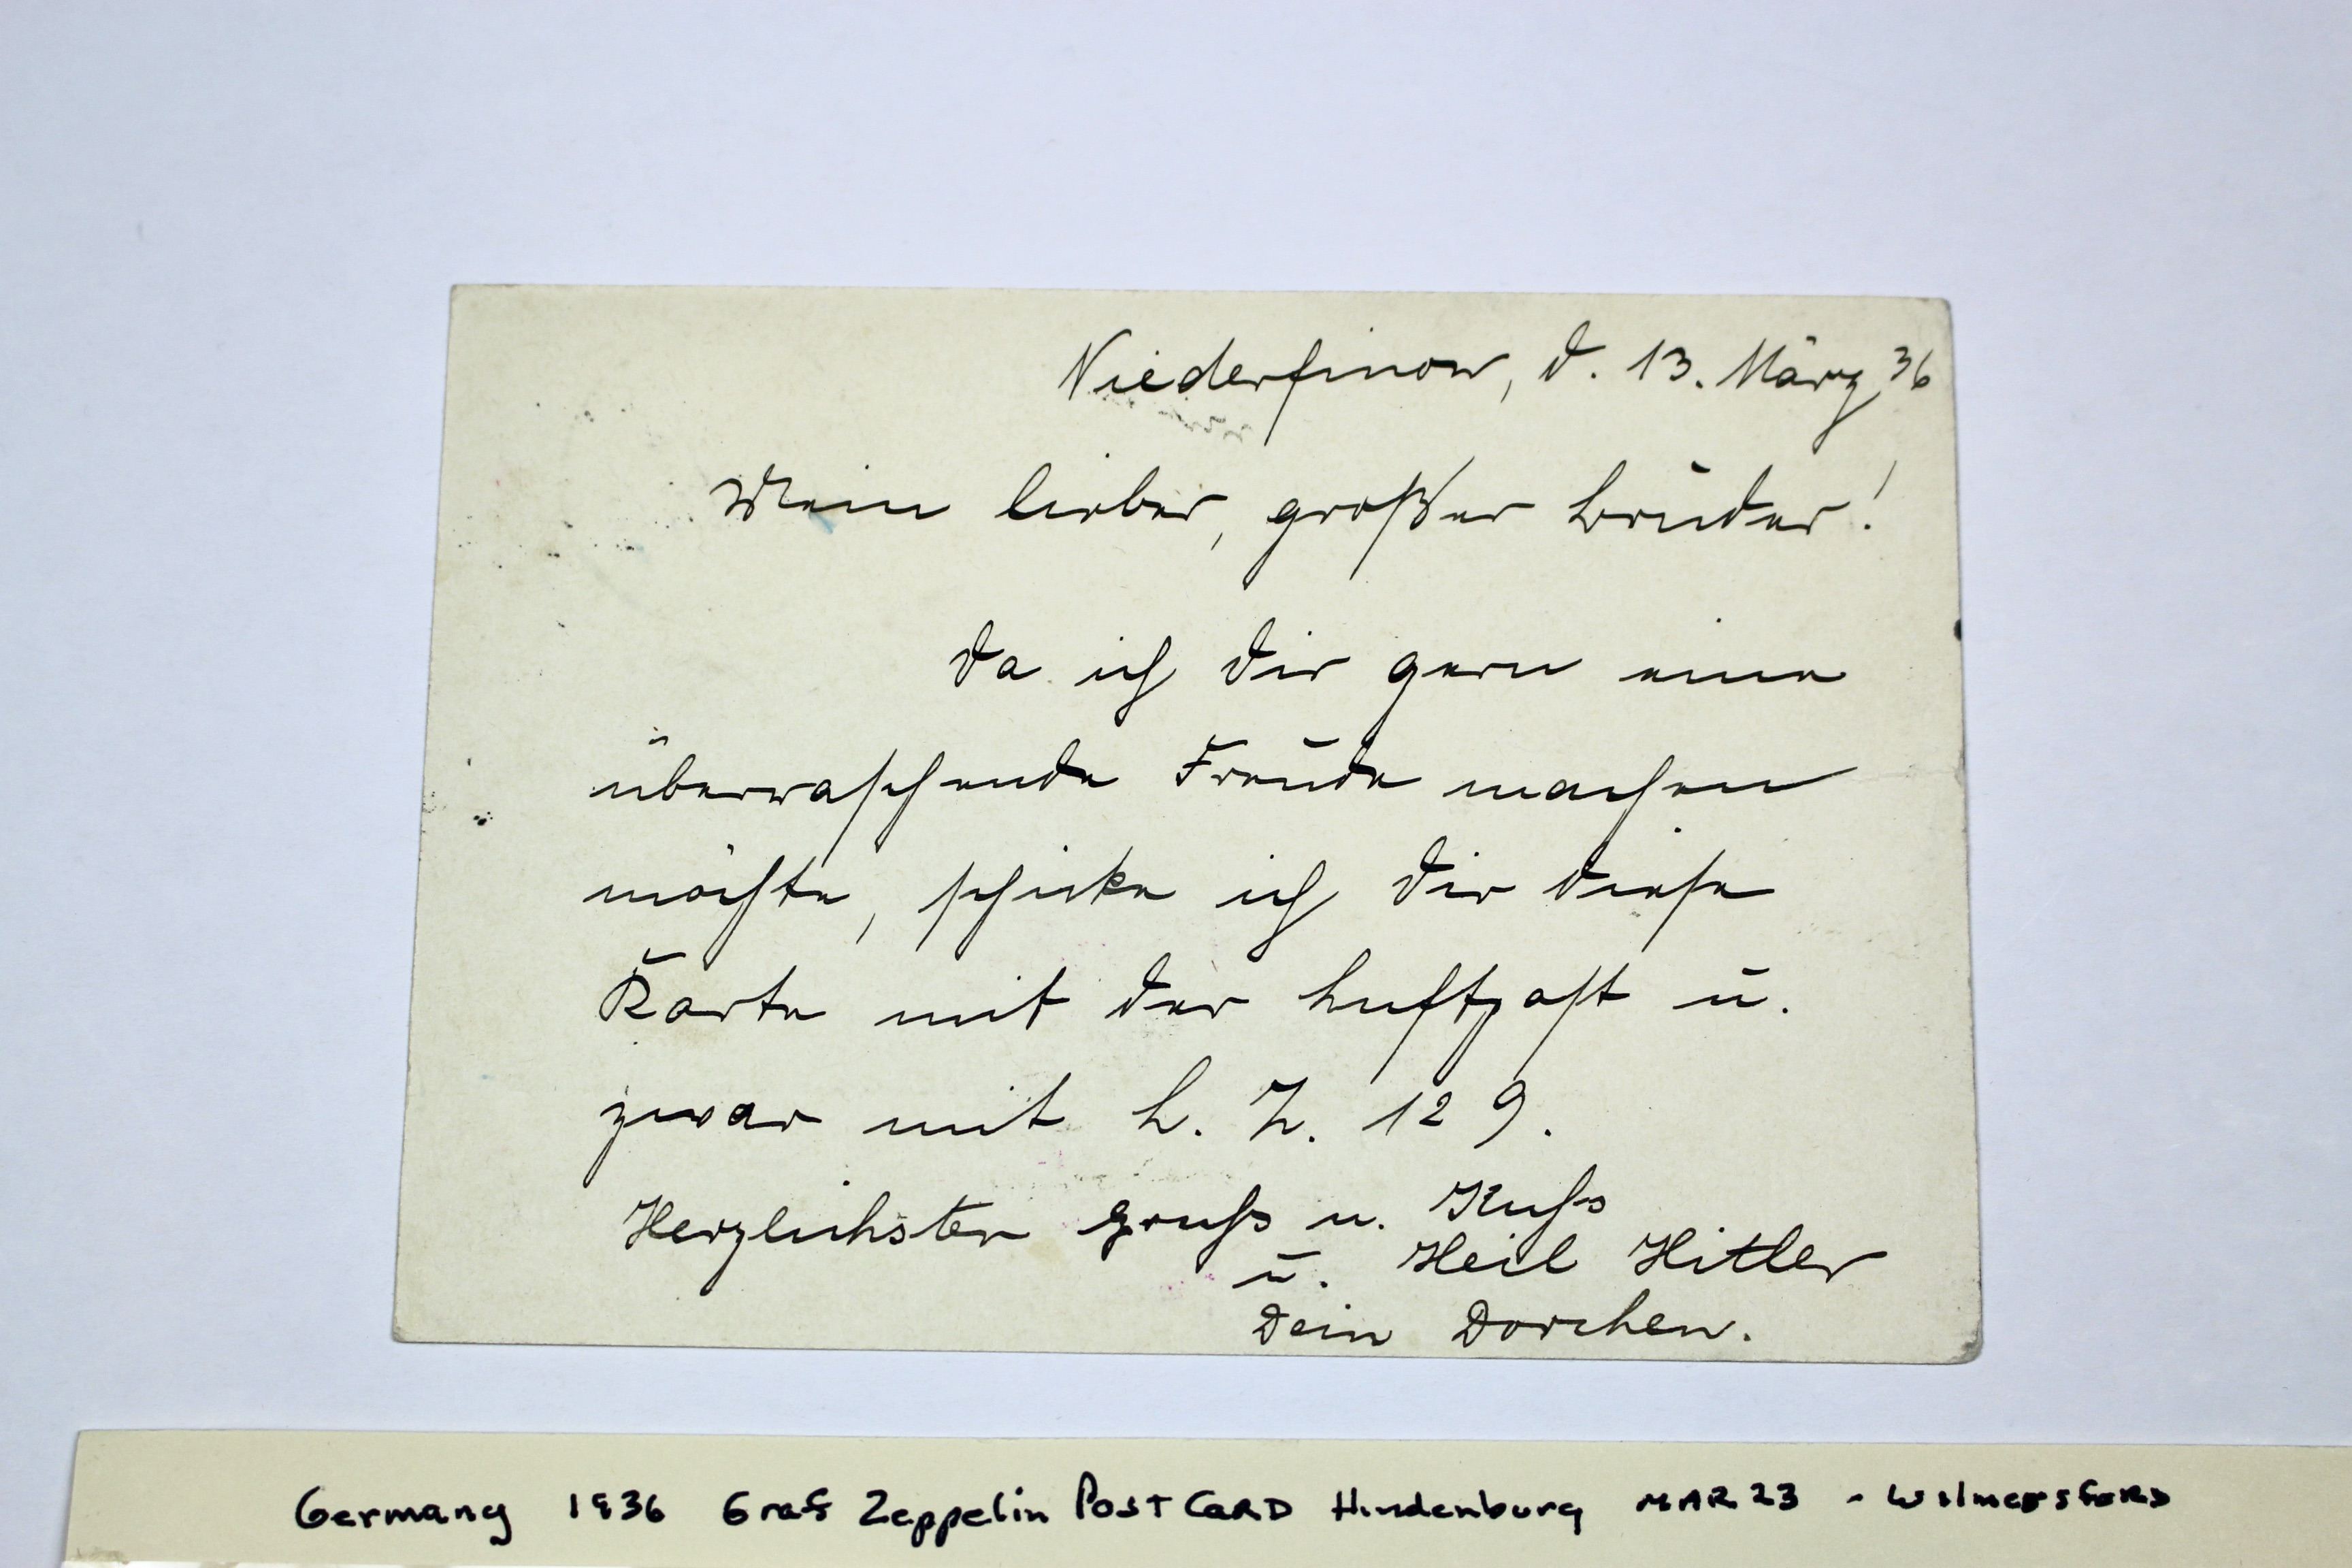 Niederfinow, d. 13. März 36
Mein lieber, großer Bruder!
Da ich Dir gern eine
überraschende Freude machen
möchte, schicke ich Dir diese
Karte mit der Luftpost u.
zwar mit L. Z. 129.
Herzlichsten Gruss u. Kuss
u. Heil Hitler
Dein Dorchen.
Germany 1936 Graf Zeppelin PostCard Hindenburg MAR 23 - Wilmersford